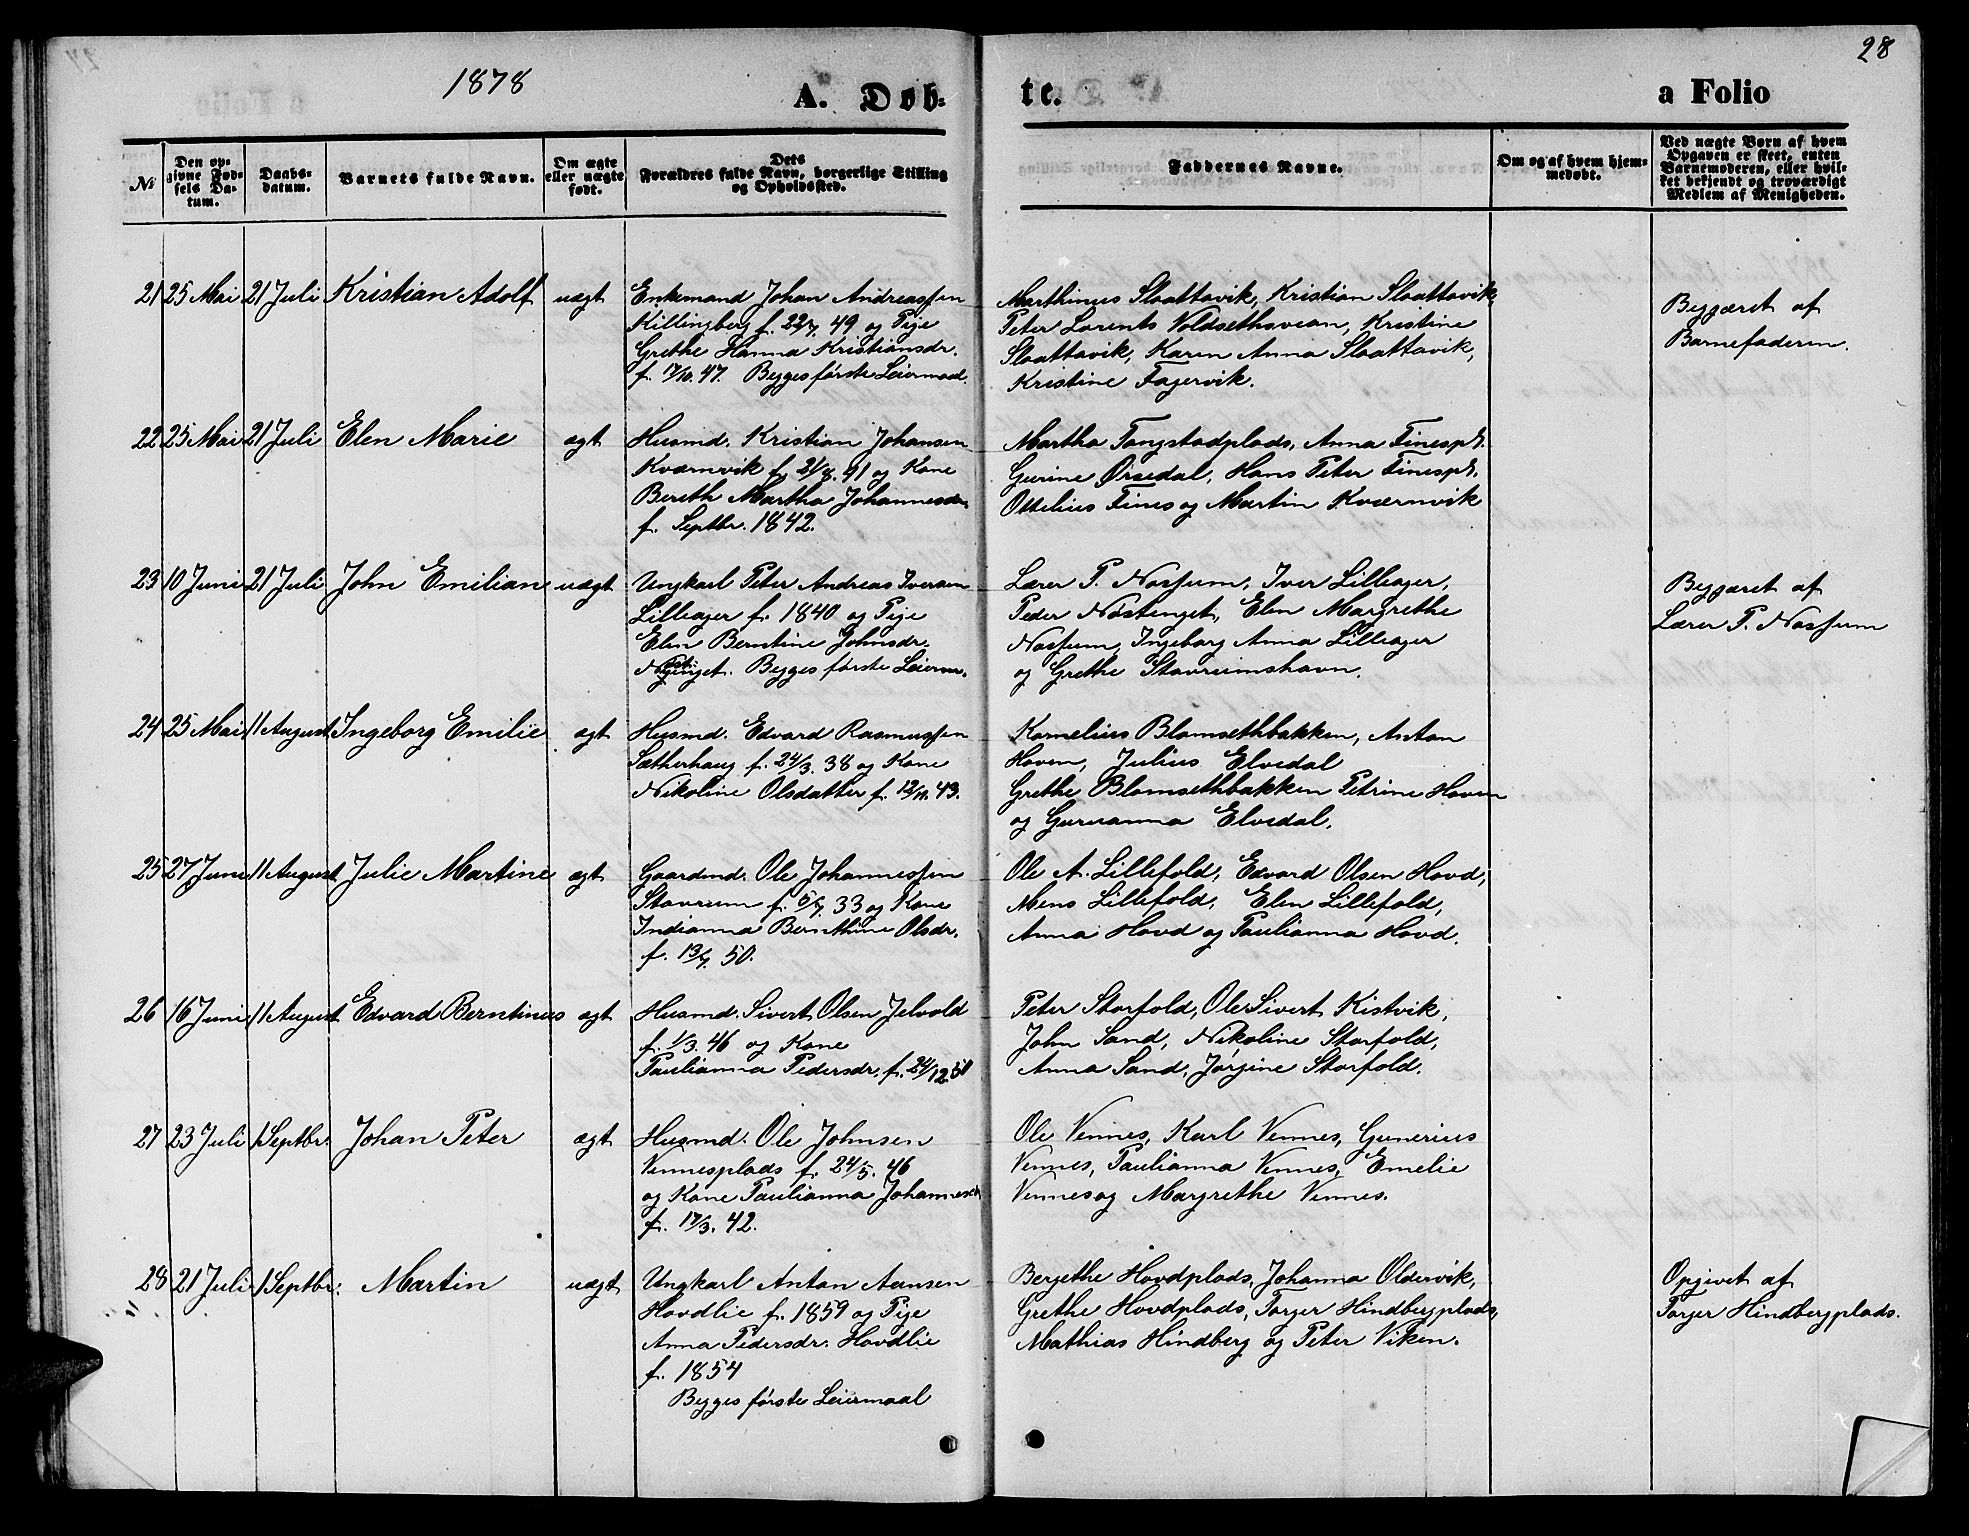 1878
28
A. Døb-
te.
a Folio
№
Den op-
givne Fød-
sels Da-
tum.
Daabs-
datum.
Barnets fulde Navn.
Om ægte
eller uægte
født.
Dets
Forældres fulde Navn, borgerlige Stilling
og Opholdssted.
Faddernes Navne.
Om og af hvem hjem-
medøbt.
Ved uægte Børn af hvem
Opgaven er skeet, enten
Barnemoderen, eller hvil-
ket bekjendt og troværdigt
Medlem af Menigheden.
21 25 Mai 21 Juli Kristian Adolf uægt
Enkemand Johan Andreassen
Killingberg f. 22/7. 49 og Pige
Grethe Hanna Kristiansdr.
f. 17/10. 47. Begges første Leiermaal.
Marthinus Slaattavik, Kristian Slaattavik,
Peter Lorents Voldsethsveian, Kristine
Slaattavik, Karen Anna Slaattavik,
Kristine Fagervik.
Begjæret af
Barnefaderen.
22 25 Mai 21 Juli Elen Marie ægt
Husmd. Kristian Johansen
Kværnvik f. 21/8. 41 og Kone
Bereth Martha Johannesdr.
f. Septbr. 1842.
Martha Tangstadplads, Anna Finespl.
Gurine Ørsedal, Hans Peter Finespl.
Ottelius Fines og Martin Kværnvik
23 10 Juni 21 Juli John Emilian uægt
Ungkarl Peter Andreas Iversen
Lilleager f. 1840 og Pige
Elen Berntine Johnsdr.
Nøstenget. Begges første Leierm.
Lærer P. Nossum, Iver Lilleager,
Peder Nøstenget, Elen Margrethe
Nossum, Ingeborg Anna Lilleager
og Grethe Stavrumshavn.
Begjæret af
Lærer P. Nossum
24 25 Mai 11 August Ingeborg Emilie ægt
Husmd. Edvard Rasmussen
Sætherhaug f. 24/3. 38 og Kone
Nikoline Olsdatter f. 12/11. 43.
Kornelius Blomsethbakken, Anton
Hoven, Julius Elvedal
Grethe Blomsethbakken Petrine Hoven
og Guruanna Elvedal.
25 27 Juni 11 August Julie Martine ægt
Gaardmd. Ole Johannessen
Stavrum f. 5/7. 33 og Kone
Indianna Bernthine Olsdr.
f. 13/7. 50.
Ole A. Lillefold, Edvard Olsen Hovd,
Mens Lillefold, Elen Lillefold,
Anna Hovd og Paulianna Hovd.
26 16 Juni 11 August Edvard Berntinus ægt
Husmd. Sivert Olsen Jelvold
f. 1/3. 46 og Kone
Paulianna Pedersdr. f. 24/12.50
Peter Storfold, Ole Sivert Kistvik,
John Sand, Nikoline Storfold,
Anna Sand, Jørgine Storfold.
27 23 Juli 1 Septbr. Johan Peter ægt
Husmd. Ole Johnsen
Vennesplads f. 24/5. 46
og Kone Paulianna Johannesdr
f. 17/3. 42.
Ole Vennes, Karl Vennes, Gunerius
Vennes, Paulianna Vennes, Emelie
Vennes og Margrethe Vennes.
28 21 Juli 1 Septbr. Martin uægt
Ungkarl Anton Aunsen
Hovdlie f. 1859 og Pige
Anna Pedersdr. Hovdlie
f. 1854
Begges første Leiermaal
Bergethe Hovdplads, Johanna Oldervik,
Grethe Hovdplads, Torger Hindbergplads,
Mathias Hindberg og Peter Viken.
Opgivet af
Torger Hindbergplads.